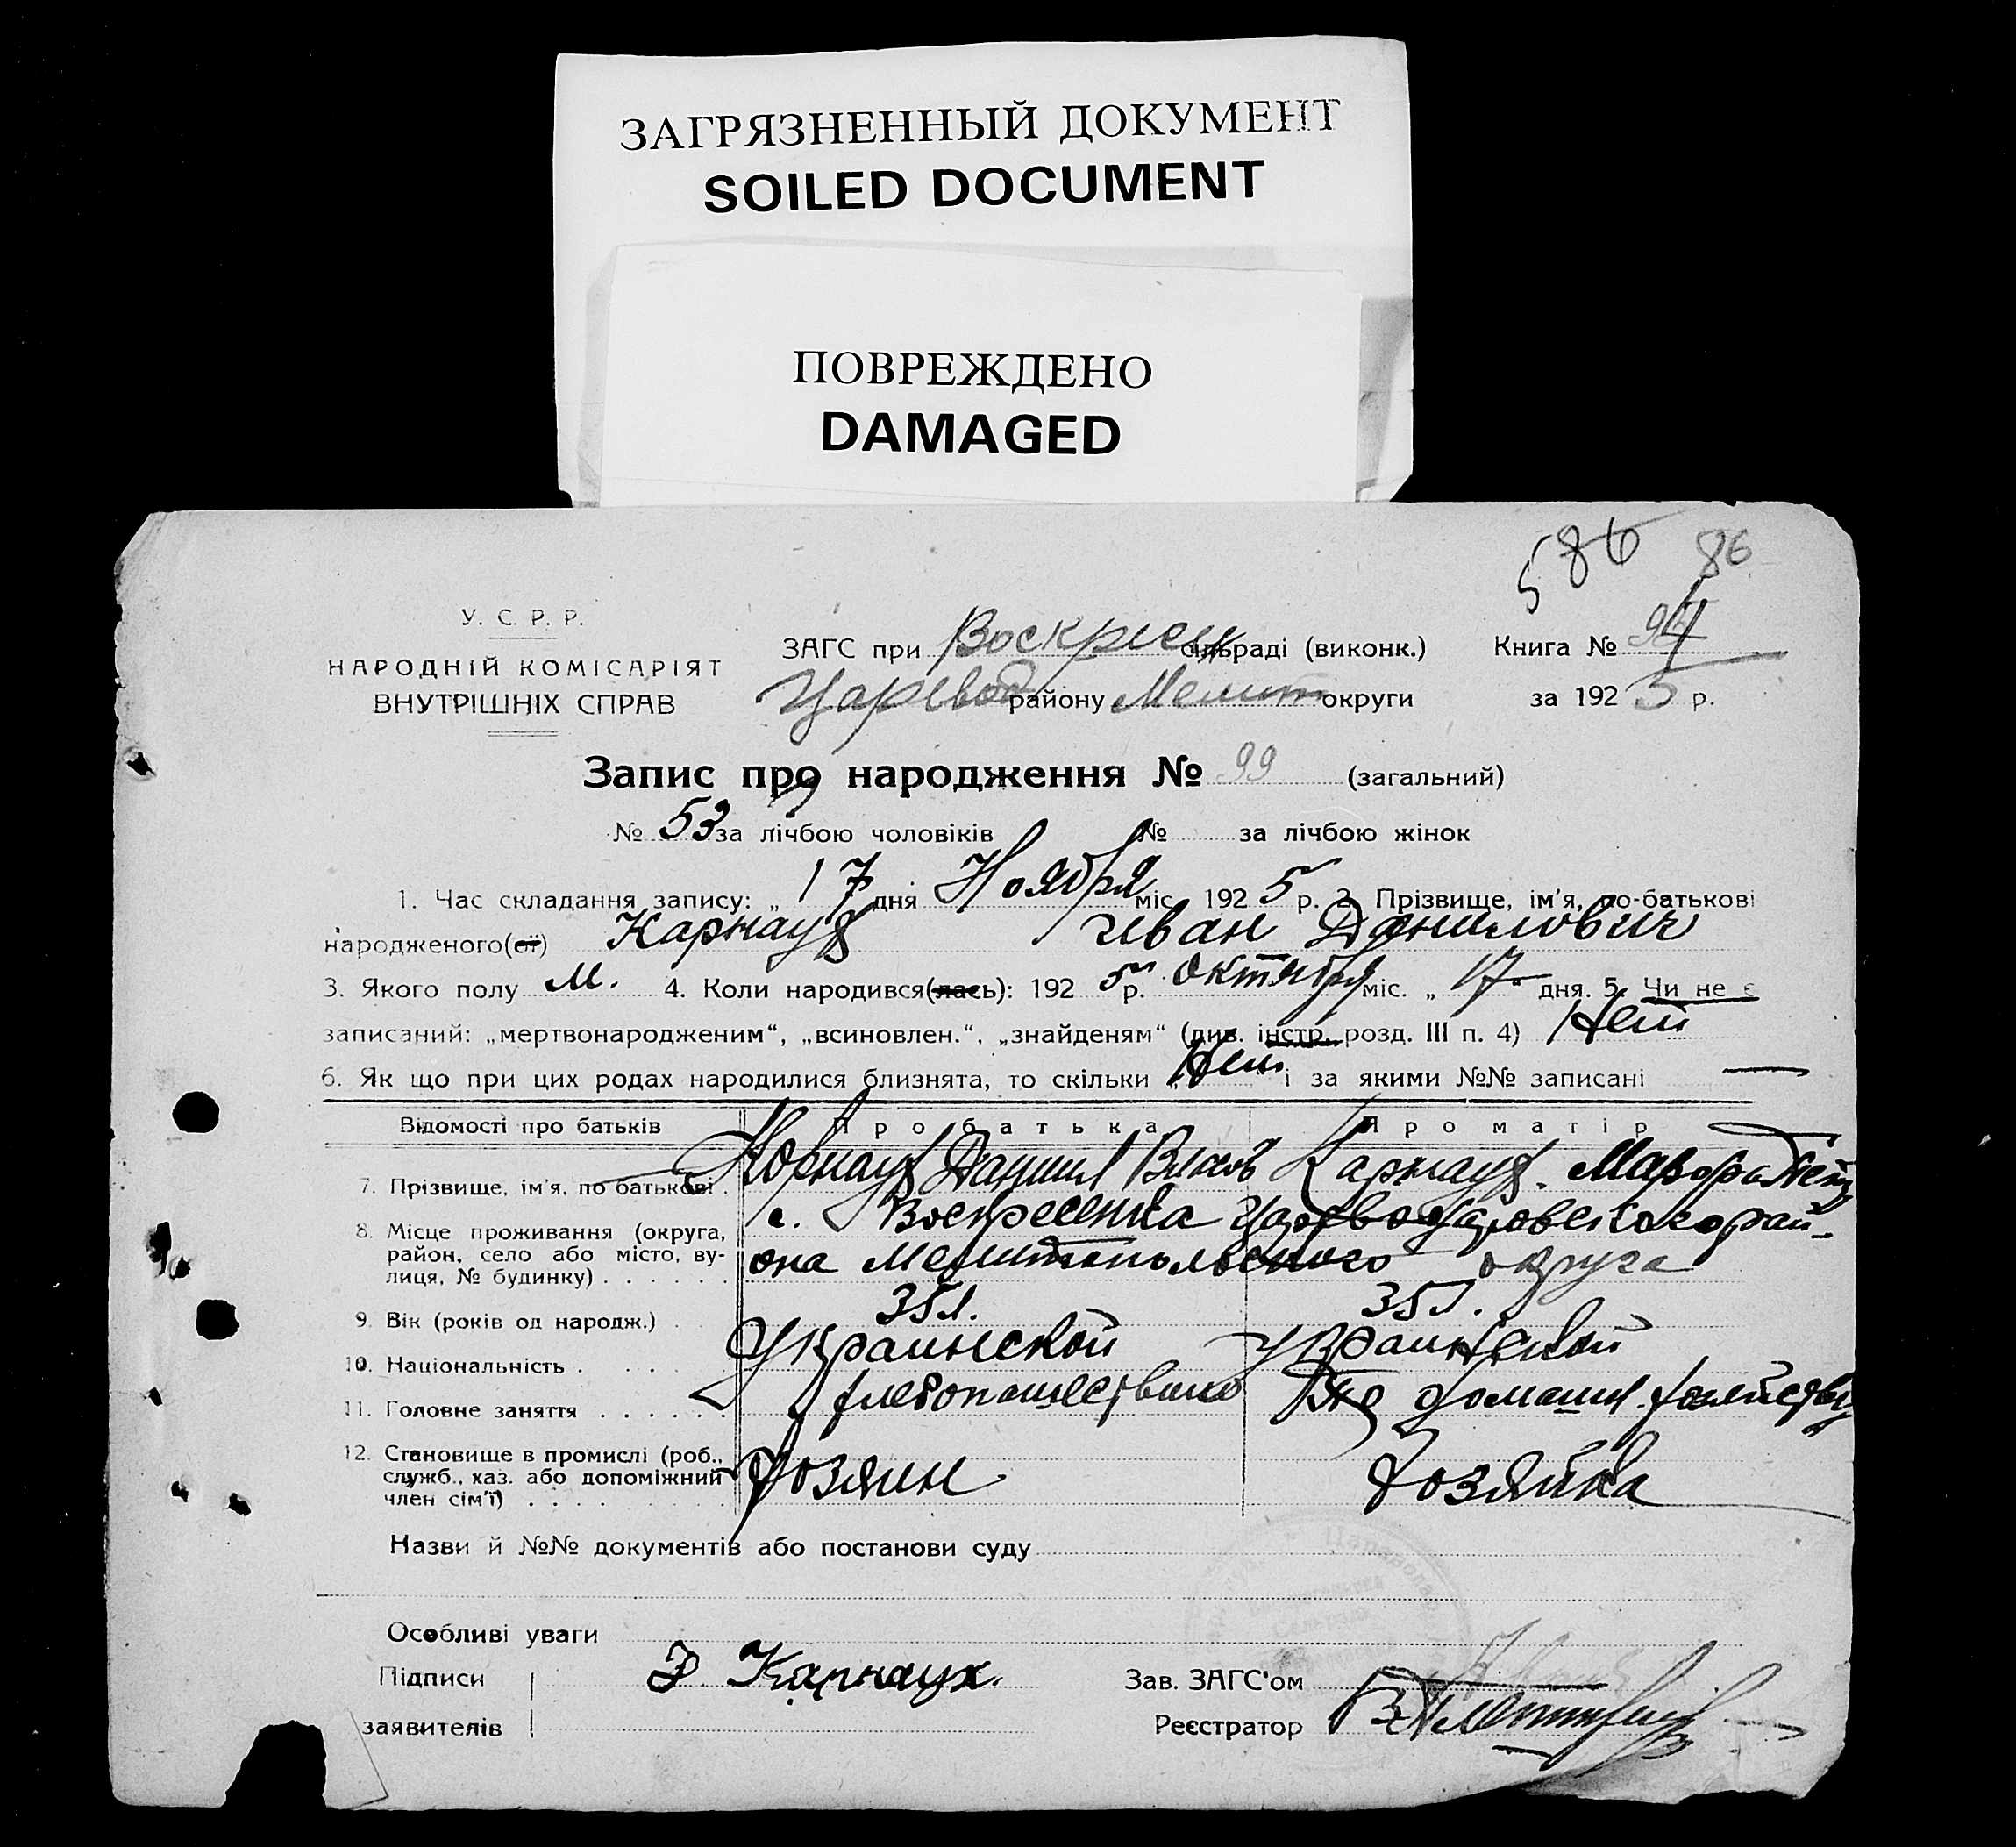 ЗАГРЯЗНЕННЫЙ ДОКУМЕНТ
SOILED DOCUMENT
ПОВРЕЖДЕНО
DAMAGED
586 86
У. С. Р. Р.
НАРОДНІЙ КОМІСАРІЯТ
ВНУТРІШНІХ СПРАВ
ЗАГС при Воскресен сільраді (виконк.) Книга №
Царевод району Мелит округи за 1925 р.
Запис про народження № 99 (загальний)
№ 53 за лічбою чоловіків № за лічбою жінок
1. Час складання запису: „ 17 дня Ноября міс. 1925 р. 2. Прізвище, ім'я, по-батькові
народженого(ої) Карнаух Иван Данилович
3. Якого полу м. 4. Коли народився(лась): 1925 р. октября міс. „ 17 " дня. 5. Чи не є
записаний: „мертвонародженим“, „всиновлен.“, „знайденям“ (див. інстр. розд. III п. 4) Нет
6. Як що при цих родах народилися близнята, то скільки „ Нет " і за якими №№ записані —
Відомості про батьків Про батька Про матір
7. Прізвище, ім'я, по батькові . Карнаух Даниил Карнаух
8. Місце проживання (округа, район, село або місто, вулиця, № будинку) . . . . . . с. Воскресенка Царевододаровского рай-
она Мелитопольского округа
9. Вік (років од народж.) . 35 л. 35 л.
10. Національність . . . . Украинской Украинской
11. Головне заняття . . . . . . хлебопашество домашн. хозяйству
12. Становище в промислі (роб., служб., хаз. або допоміжний член сім'ї) . . . . Хозяин Хозяйка
Назви й №№ документів або постанови суду
Особливі уваги
Підписи Карнаух. Зав. ЗАГС'ом
заявителів Реєстратор